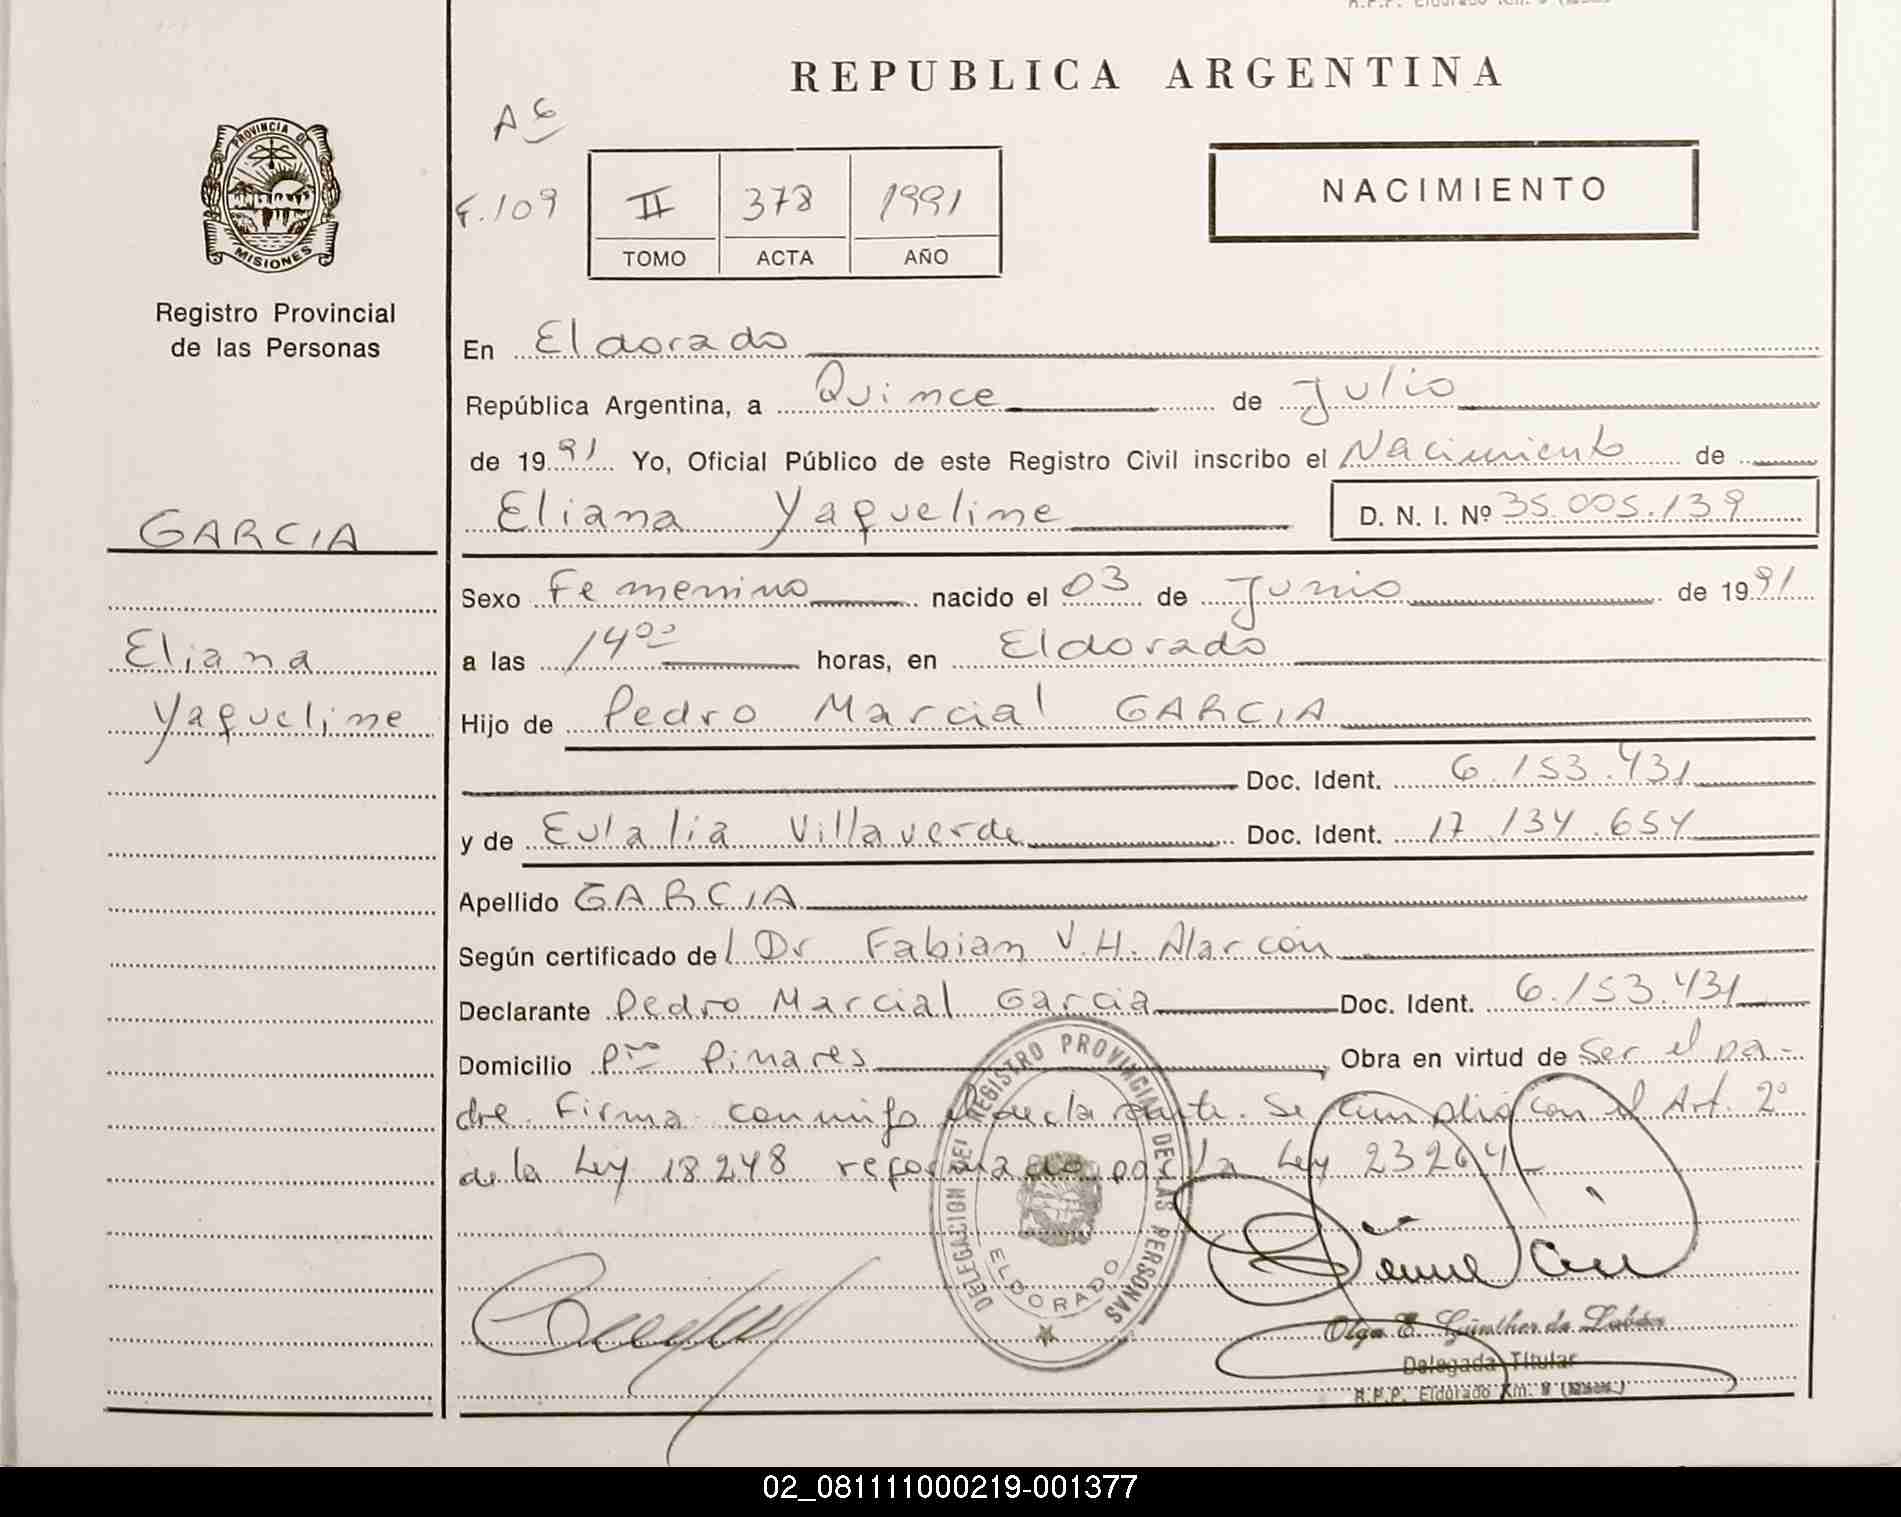 REPUBLICA ARGENTINA
A 6
F. 109
II 378 1991
TOMO ACTA AÑO
NACIMIENTO
PROVINCIA DE
MISIONES
Registro Provincial
de las Personas
En Eldorado
República Argentina, a Quince de Julio
de 1991 Yo, Oficial Público de este Registro Civil inscribo el Nacimiento de
Eliana Yaqueline D. N. I. Nº 35.005.139
GARCIA
Eliana
Yaqueline
Sexo Femenino nacido el 03 de Junio de 1991
a las 14⁰⁰ horas, en Eldorado
Hijo de Pedro Marcial GARCIA
Doc. Ident. 6.153.431
y de Eulalia Villaverde Doc. Ident. 17.134.654
Apellido GARCIA
Según certificado de l Dr Fabian V.H. Alarcón
Declarante Pedro Marcial Garcia Doc. Ident. 6.153.431
Domicilio Pto Pinares Obra en virtud de Ser el pa-
dre. Firma conmigo el declarante. Se cumplió con el Art. 2º
de la Ley 18248 reformado por la Ley 23264
DELEGACION DEL REGISTRO PROVINCIAL DE LAS PERSONAS
ELDORADO
Olga E. Günther de
Delegada Titular
R.P.P. Eldorado Km. 9
02_081111000219-001377